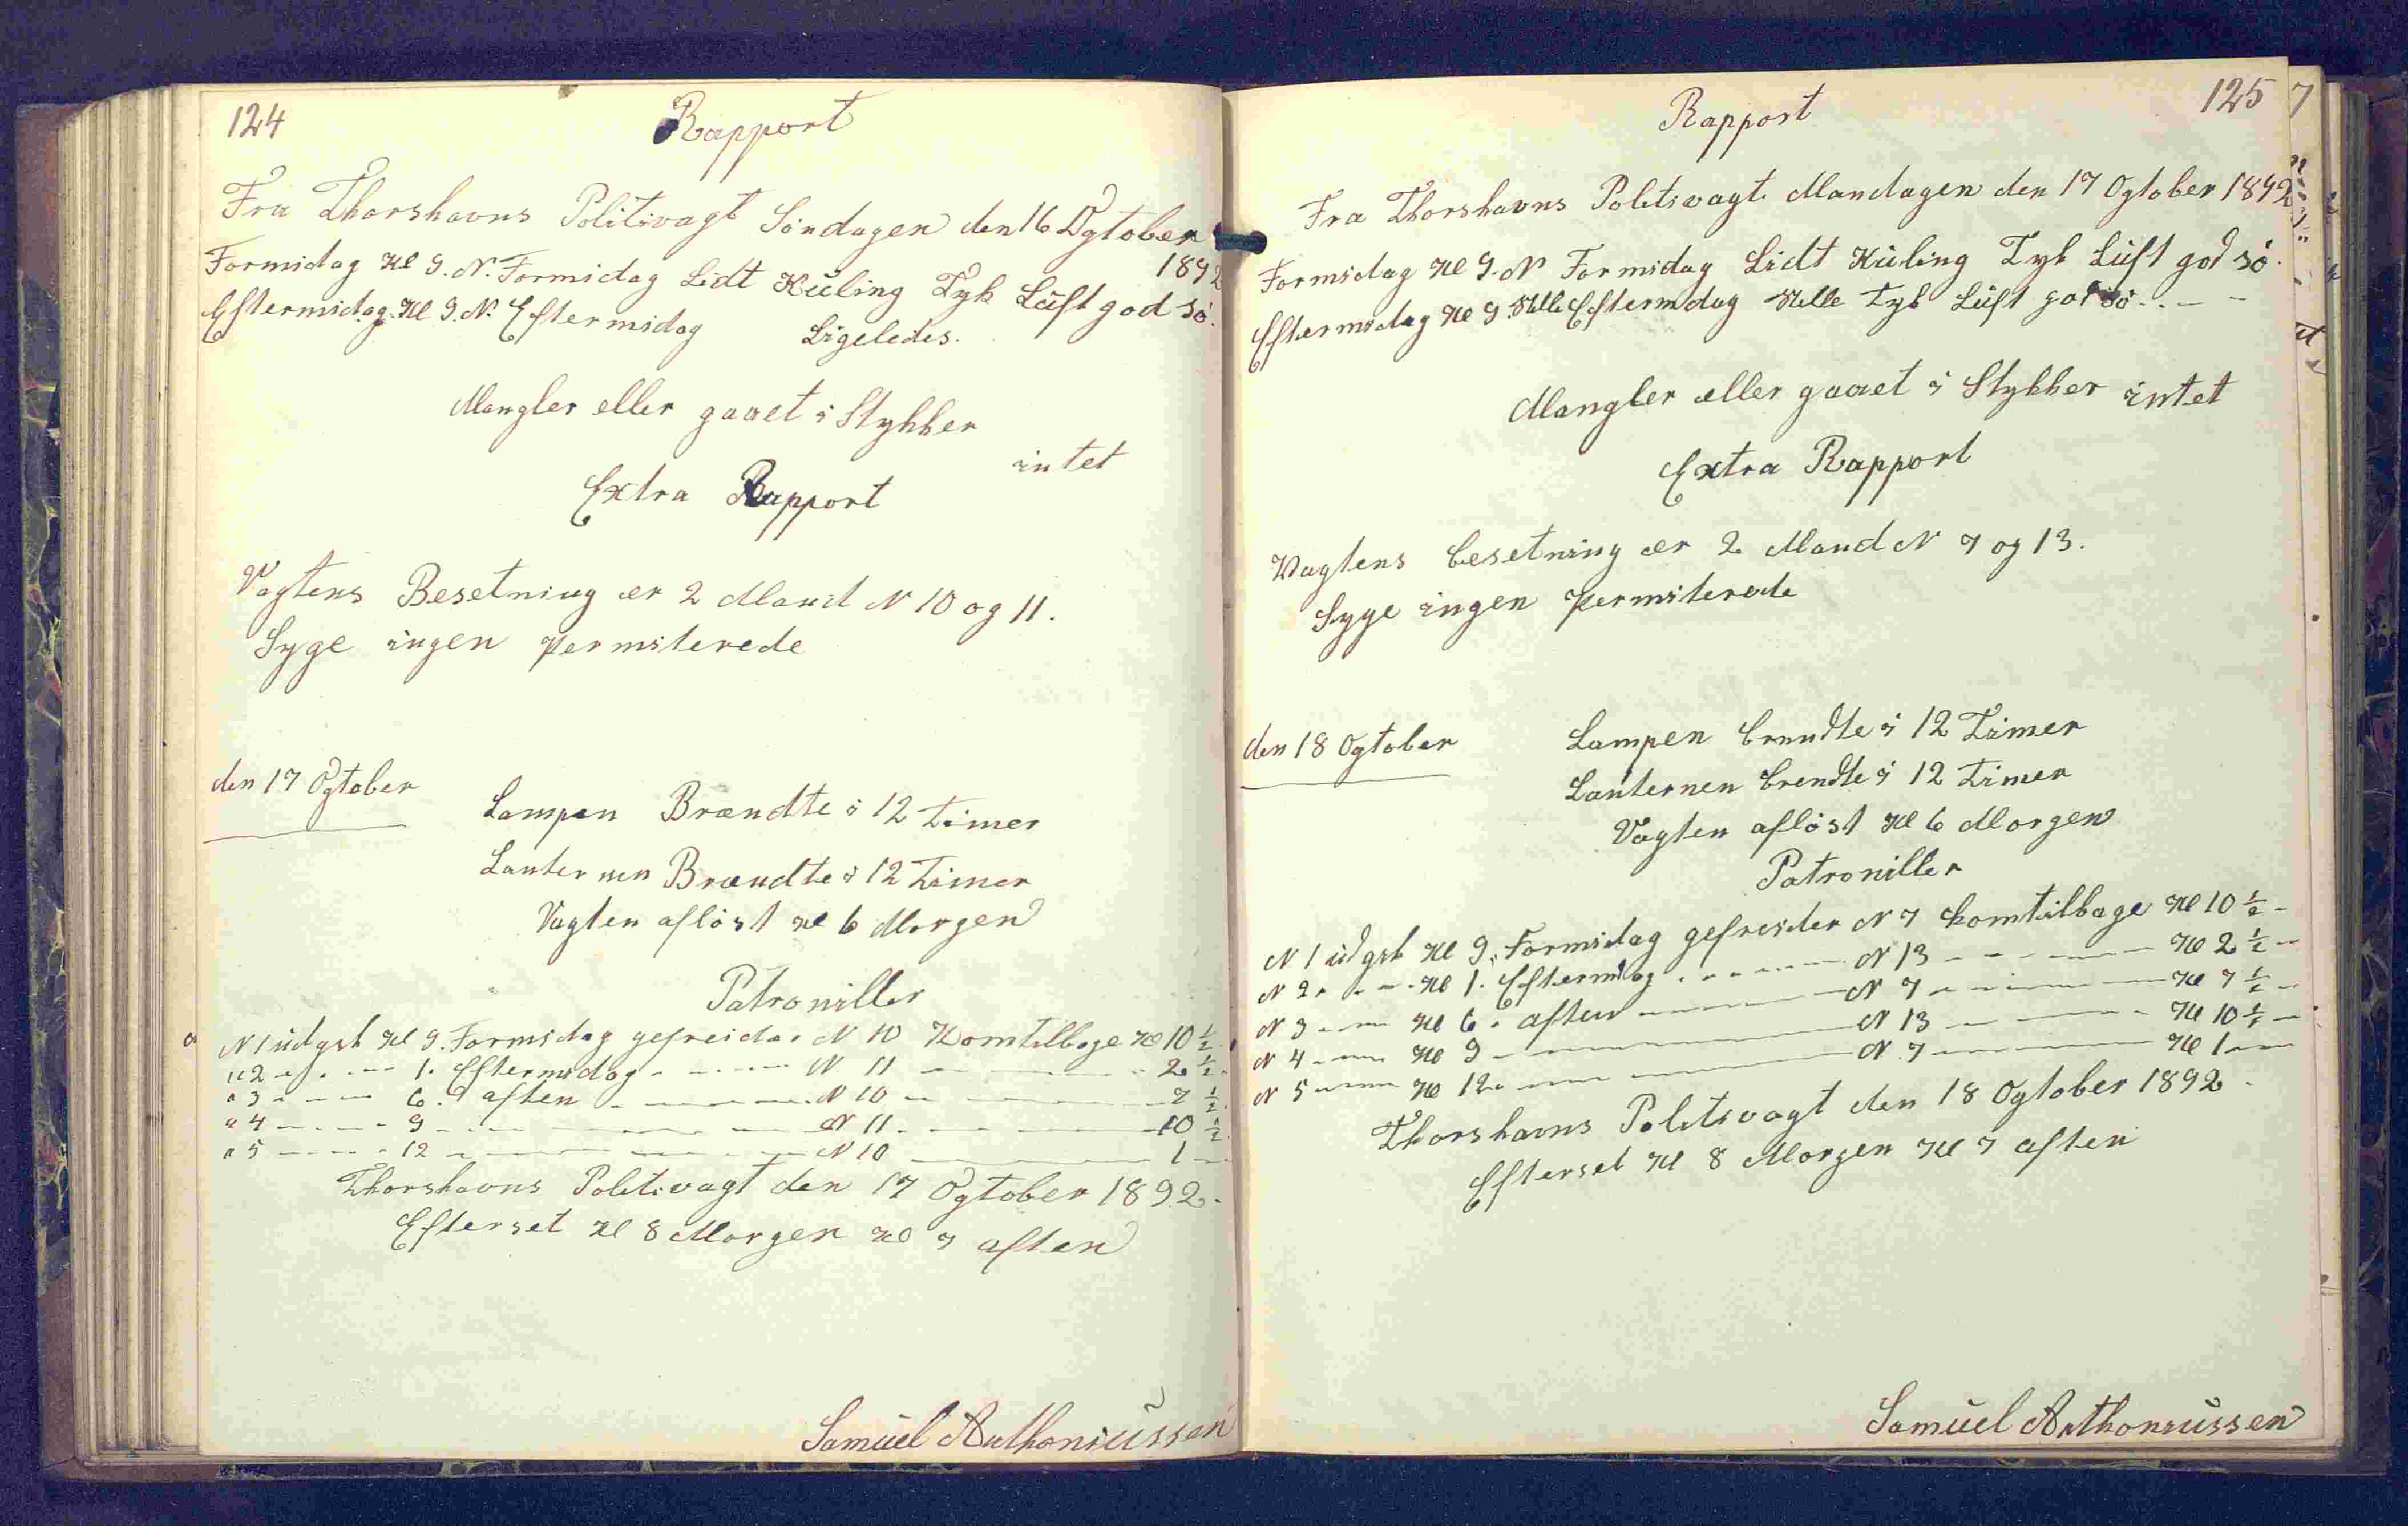 124
Rapport
Fra Thorshavns Politivagt Søndagen den 16 Ogtober
1892
Formidag Kl 9. N. Formidag Lidt Kúling Tyk Lúft god sö.
Eftermidag. Kl 9. N. Eftermidag Ligeledes.
Mangler eller gaaet i Stykker
intet
Extra Rapport
Vagtens Besetning er 2 Mand N 10 og 11.
Syge ingen permiterede
den 17 Ogtober
Lampen Brændte i 12 timer
Lanternen Brændte i 12 Timer
Vagten aflöst Kl 6 Morgen
Patroniller
N 1 údgik Kl 9. Formidag gefreider N 10 Komtilbage Kl 10 ½
" 2 - - - 1. Eftermidag - - - N 11 - - - 2 ½
" 3 - - - 6. aften - - - N 10 - - - 7 ½
" 4 - - - 9 - - - N 11 - - - 10 ½
" 5 - - - 12 - - - N 10 - - - 1 -
Thorshavns Politivagt den 17 Ogtober 1892.
Efterset Kl 8 Morgen Kl 7 aften
Samúel Anthoniússen
125
Rapport
Fra Thorshavns Politivagt Mandagen den 17 Ogtober 1892
Formidag Kl 9. N Formidag Lidt Kúling Tyk Lúft god sö.
Eftermidag Kl 9. Stille Eftermidag Stille Tyk Lúft god sö - - -
Mangler eller gaaet i Stykker intet
Extra Rapport
Vagtens besetning er 2 Mand N 7 og 13.
Syge ingen permiterede
den 18 Ogtober
Lampen brendte i 12 Timer
Lanternen brendte i 12 Timer
Vagten aflöst Kl 6 Morgen
Patroniller
N 1 údgik Kl 9. Formidag gefreider N 7 komtilbage Kl 10 ½ -
N 2 - - - Kl 1. Eftermidag - - - N 13 - - - Kl 2 ½ -
N 3 - - - Kl 6. aften - - - N 7 - - - Kl 7 ½ -
N 4 - - - Kl 9 - - - N 13 - - - Kl 10 ½ -
N 5 - - - Kl 12 - - - N 7 - - - Kl 1 -
Thorshavns Politivagt den 18 Ogtober 1892.
Efterset Kl 8 Morgen Kl 7 aften
Samúel Anthoniússen